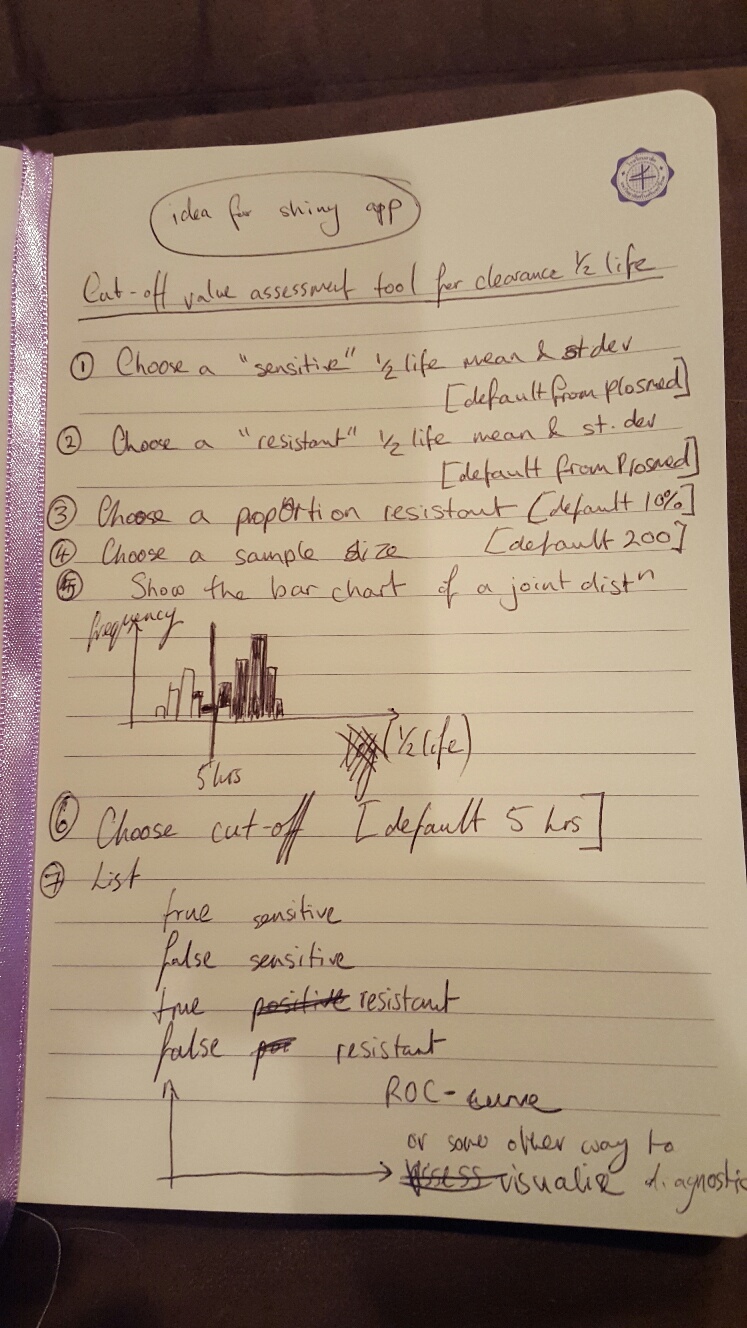 idea for shiny app
Cut-off value assessment tool for clearance ½ life
① Choose a "sensitive" ½ life mean & st dev
[default from plosmed]
② Choose a "resistant" ½ life mean & st. dev
[default from Plosmed]
③ Choose a proportion resistant [default 10%]
④ Choose a sample size [default 200]
⑤ Show the bar chart of a joint distⁿ
frequency
(½ life)
5 hrs
⑥ Choose cut-off [default 5 hrs]
⑦ List
true sensitive
false sensitive
true positive resistant
false resistant
ROC-curve
or some other way to
assess visualise diagnostic